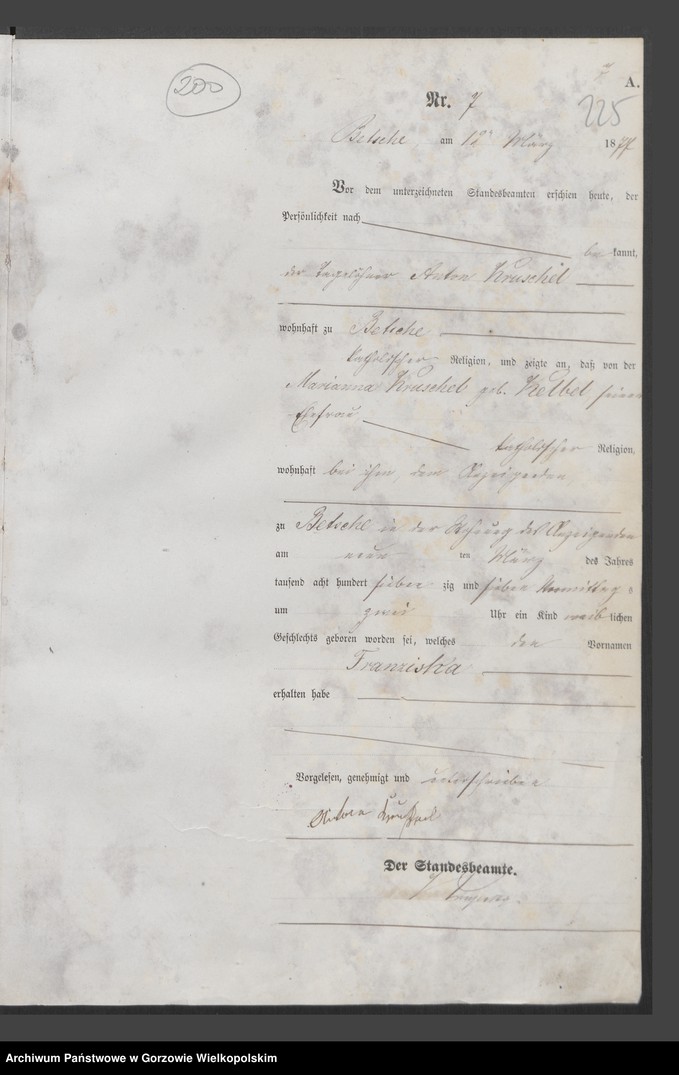 200
A.
225
Nr. 7
Betsche, am 12 März 1877
Vor dem unterzeichneten Standesbeamten erschien heute, der
Persönlichkeit nach
be kannt,
der Tagelöhner Anton Kruschel
wohnhaft zu Betsche
katholischer Religion, und zeigte an, daß von der
Marianna Kruschel geb. Kelbel, seiner
Ehefrau,
katholischer Religion,
wohnhaft bei ihm, dem Anzeigenden,
zu Betsche in der Wohnung des Anzeigenden
am neun ten März des Jahres
tausend acht hundert sieben zig und sieben Vormittags
um zwei Uhr ein Kind weib lichen
Geschlechts geboren worden sei, welches den Vornamen
Franziska
erhalten habe
Vorgelesen, genehmigt und unterschrieben
Anton Kruschel
Der Standesbeamte.
Archiwum Państwowe w Gorzowie Wielkopolskim